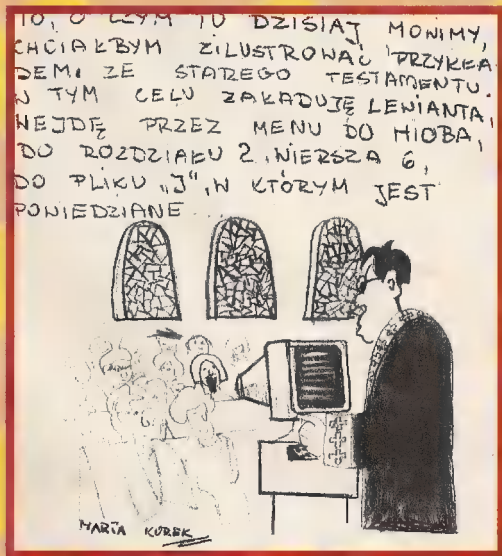 TO, O CZYM TU DZISIAJ MÓWIMY,
CHCIAŁBYM ZILUSTROWAĆ PRZYKŁA
DEM ZE STAREGO TESTAMENTU.
W TYM CELU ZAŁADUJĘ LEWIANTA,
WEJDĘ PRZEZ MENU DO HIOBA,
DO ROZDZIAŁU 2, WIERSZA 6,
DO PLIKU „J", W KTÓRYM JEST
POWIEDZIANE
MARIA KUREK